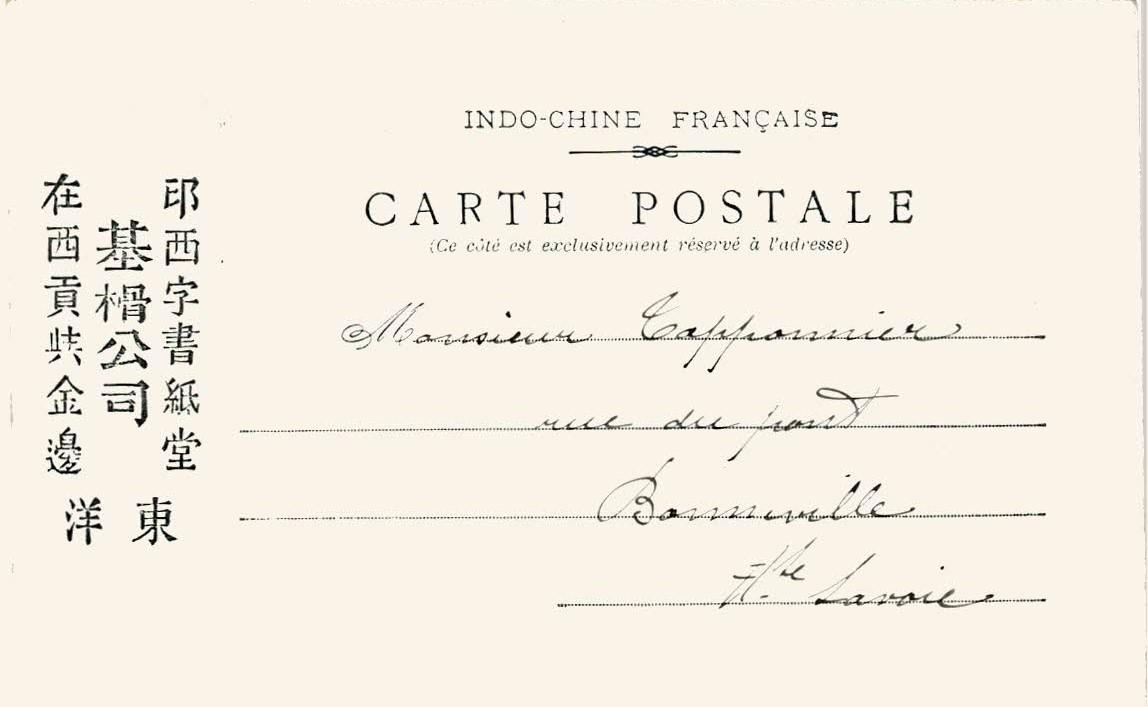 INDO-CHINE FRANÇAISE
CARTE POSTALE
(Ce côté est exclusivement réservé à l'adresse)
Monsieur Tapponnier
rue du pont
Bonneville
Hte Savoie
印西字書紙堂
基榾公司
在西貢共金邊
東洋